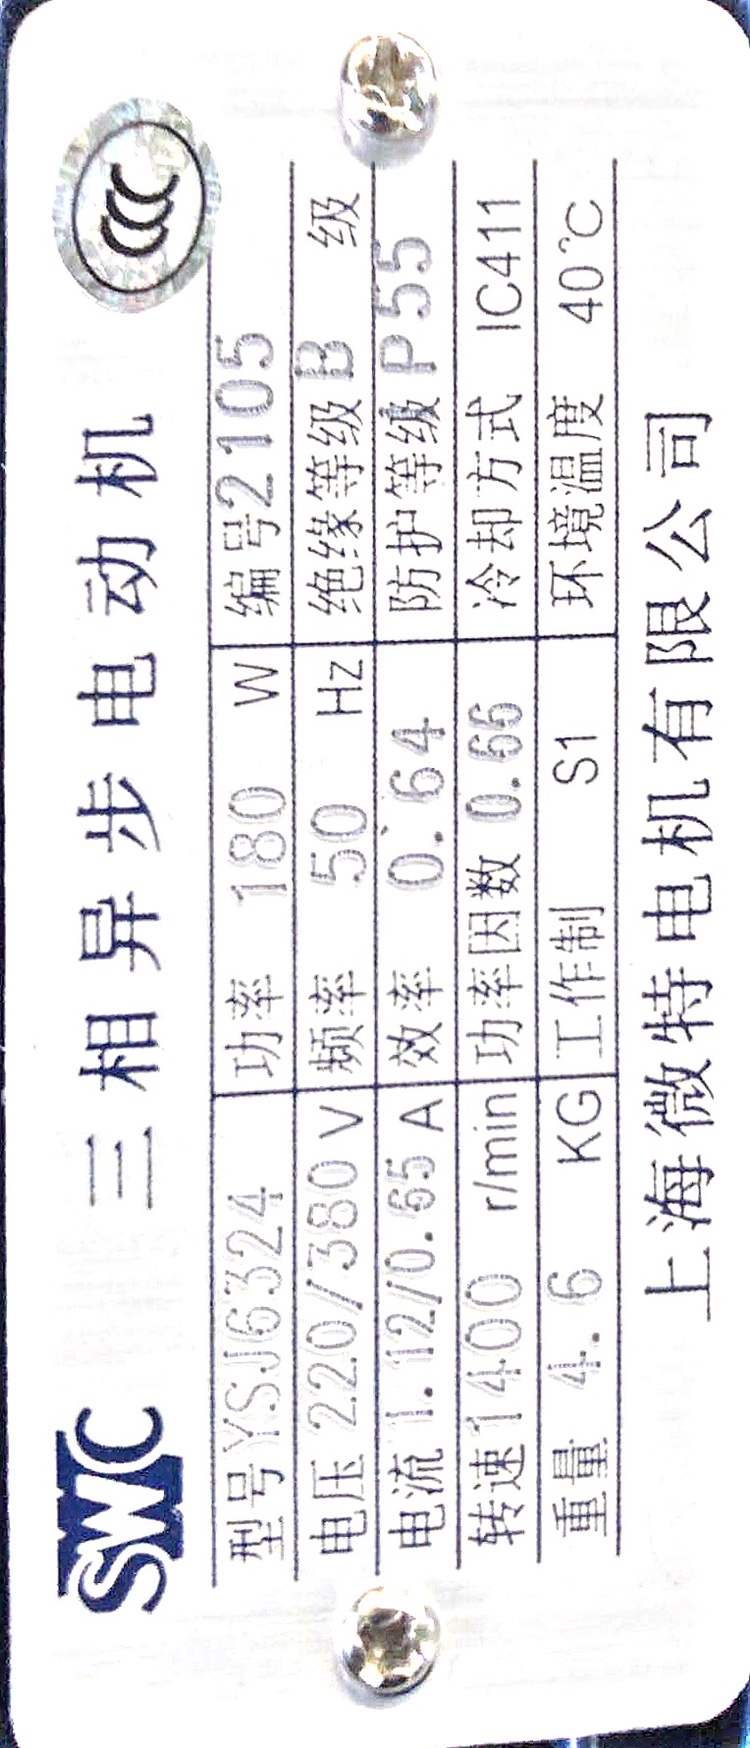 SWC 三相异步电动机 CCC
型号 YSJ6324 功率 180 W 编号 2105
电压 220/380 V 频率 50 Hz 绝缘等级 B 级
电流 1.12/0.65 A 效率 0.64 防护等级 P55
转速 1400 r/min 功率因数 0.66 冷却方式 IC411
重量 4.6 KG 工作制 S1 环境温度 40℃
上海微特电机有限公司